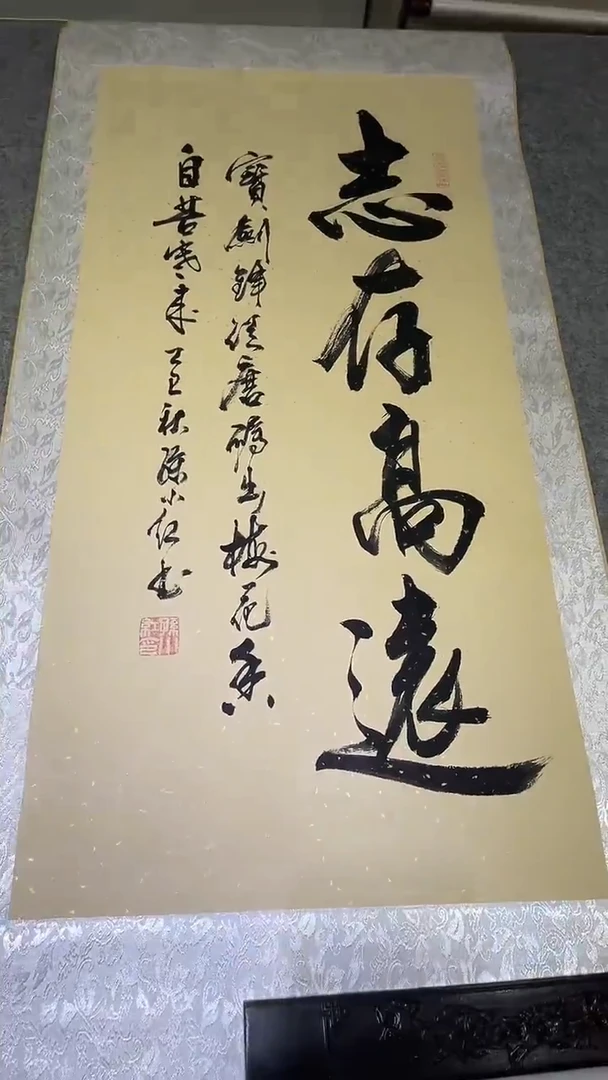 志存高遠
寶劍鋒從磨礪出梅花香
自苦寒來 丁丑秋 孫小紅書